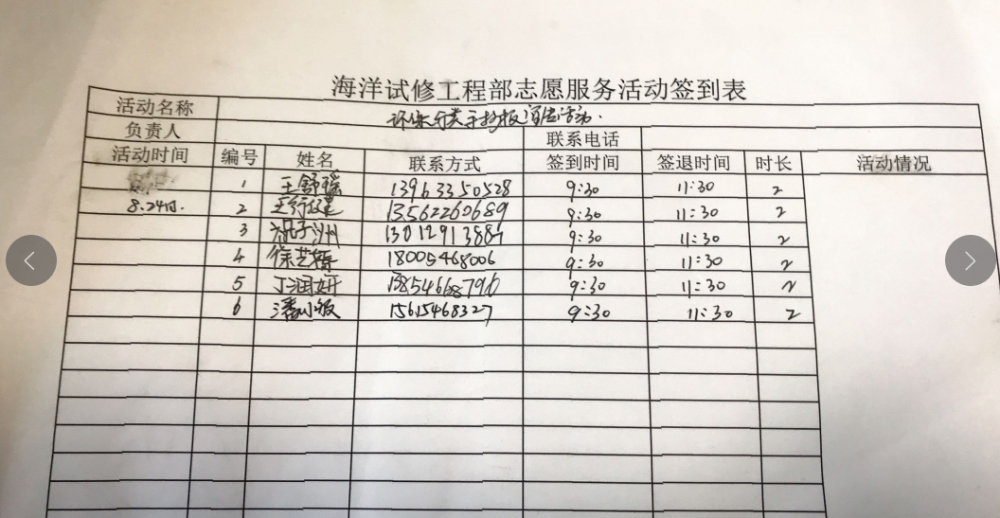 海洋试修工程部志愿服务活动签到表
活动名称 环保分类手抄报宣传活动.
负责人 联系电话
活动时间 编号 姓名 联系方式 签到时间 签退时间 时长 活动情况
1 王舒瑶 13963350528 9:30 11:30 2
8.24日. 2 王行健 13562260689 9:30 11:30 2
3 子洲 9:30 11:30 2
4 徐艺 18005468006 9:30 11:30 2
5 丁润妍 9:30 11:30 2
6 潘 15615468327 9:30 11:30 2